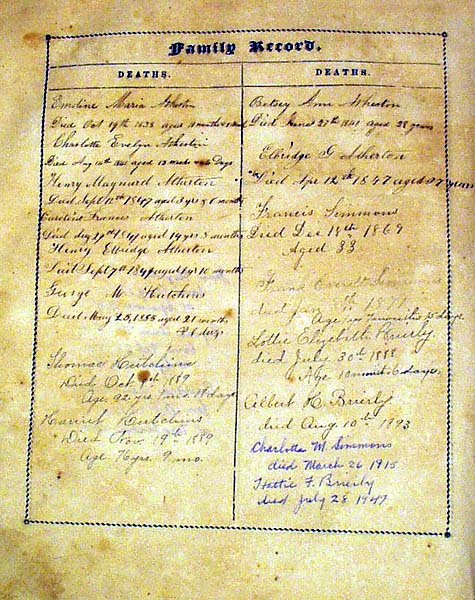 Family Record.
DEATHS.
Emeline Maria Atherton
Died Oct 19th 1838 aged 11 months
Charlotte Evelyn Atherton
Died Aug 1841 aged 13 months Days
Henry Maynard Atherton
Died Sept 1847 aged 3 yrs 6 months
Caroline Frances Atherton
Died 1847 aged 14 yrs 3 months
Henry Elbridge Atherton
Died Sept 7th aged 1 yr 10 months
George M Hutchins
Died May 25, 1855 aged 21 months
& 6 days
Thomas Hutchins
Died Oct
Age 82 yrs 18 days
Harriet Hutchins
Died Nov 19th 1880
age yrs. 9 mo.
DEATHS.
Betsey Ann Atherton
Died June 27th 1841 aged 28 years
Elbridge G Atherton
Died Apr 12th 1847 aged 37 years
Francis Simmons
Died Dec 18th 1869
Aged 33
Frank Everett Simmons
died 1871
Age days
Lottie Elizabeth Brierly
died July 30th 1888
Age 10 months 6 days
Albert H. Brierly
died Aug 10th 1893
Charlotte M. Simmons
died March 26 1915
Hattie F. Brierly
died July 28 1947